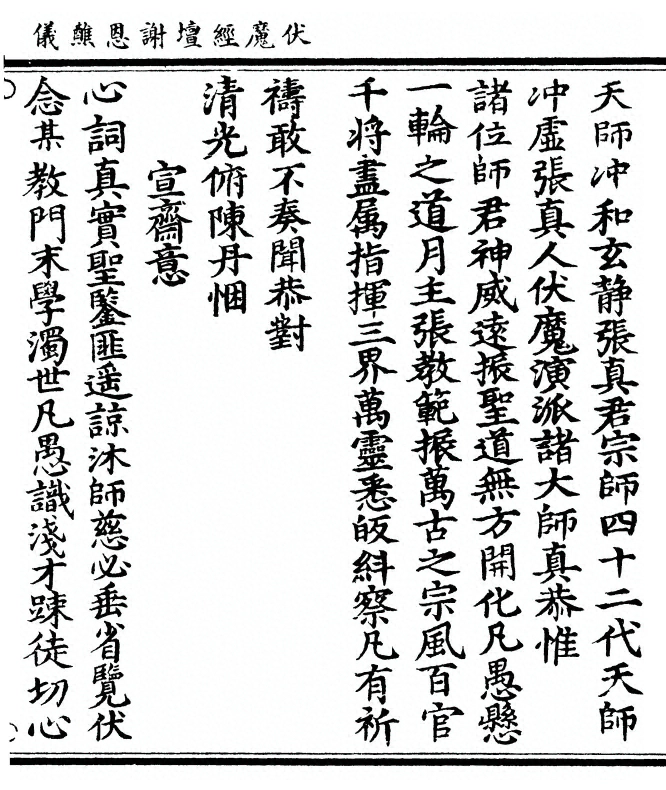 伏魔經壇謝恩醮儀
天師冲和玄静張真君宗師四十二代天師
冲虛張真人伏魔演派諸大師真恭惟
諸位師君神威遠振聖道無方開化凡愚懸
一輪之道月主張教範振萬古之宗風百官
千将盡属指揮三界萬靈悉皈糾察凡有祈
禱敢不奏聞恭對
清光俯陳丹悃
宣齋意
心詞真實聖鑒匪遥諒沐師慈必垂省覽伏
念某教門末學濁世凡愚識淺才踈徒切心